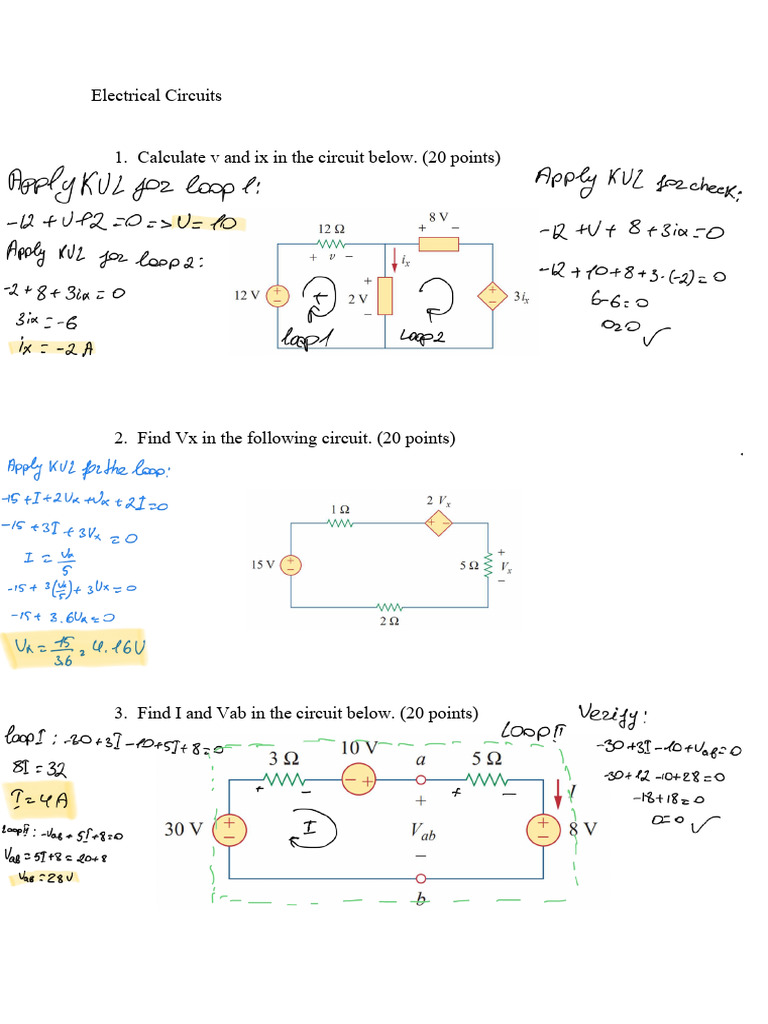 Electrical Circuits
1. Calculate v and ix in the circuit below. (20 points)
Apply KVL for loop 1:
-12 + V + 2 = 0 => V = 10
Apply KVL for loop 2:
-2 + 8 + 3ix = 0
3ix = -6
ix = -2 A
12 Ω
+ v −
8 V
+ −
ix
12 V
+
2 V
−
3ix
loop 1
Loop 2
Apply KVL for check:
-12 + V + 8 + 3ix = 0
-12 + 10 + 8 + 3·(-2) = 0
6-6 = 0
0=0 ✓
2. Find Vx in the following circuit. (20 points)
Apply KVL for the loop:
-15 + I + 2Vx + Vx + 2I = 0
-15 + 3I + 3Vx = 0
I = Vx/5
-15 + 3(Vx/5) + 3Vx = 0
-15 + 3.6Vx = 0
Vx = 15/3.6 = 4.16V
1 Ω
2 Vx
+ −
15 V
5 Ω
+
Vx
−
2 Ω
3. Find I and Vab in the circuit below. (20 points)
loop I : -30 + 3I - 10 + 5I + 8 = 0
8I = 32
I = 4 A
loop II : -Vab + 5I + 8 = 0
Vab = 5I + 8 = 20 + 8
Vab = 28V
LOOP II
3 Ω
10 V
a
5 Ω
+ −
− +
+ −
30 V
I
+
Vab
−
I
8 V
b
Verify:
-30 + 3I - 10 + Vab = 0
-30 + 12 - 10 + 28 = 0
-18 + 18 = 0
0=0 ✓